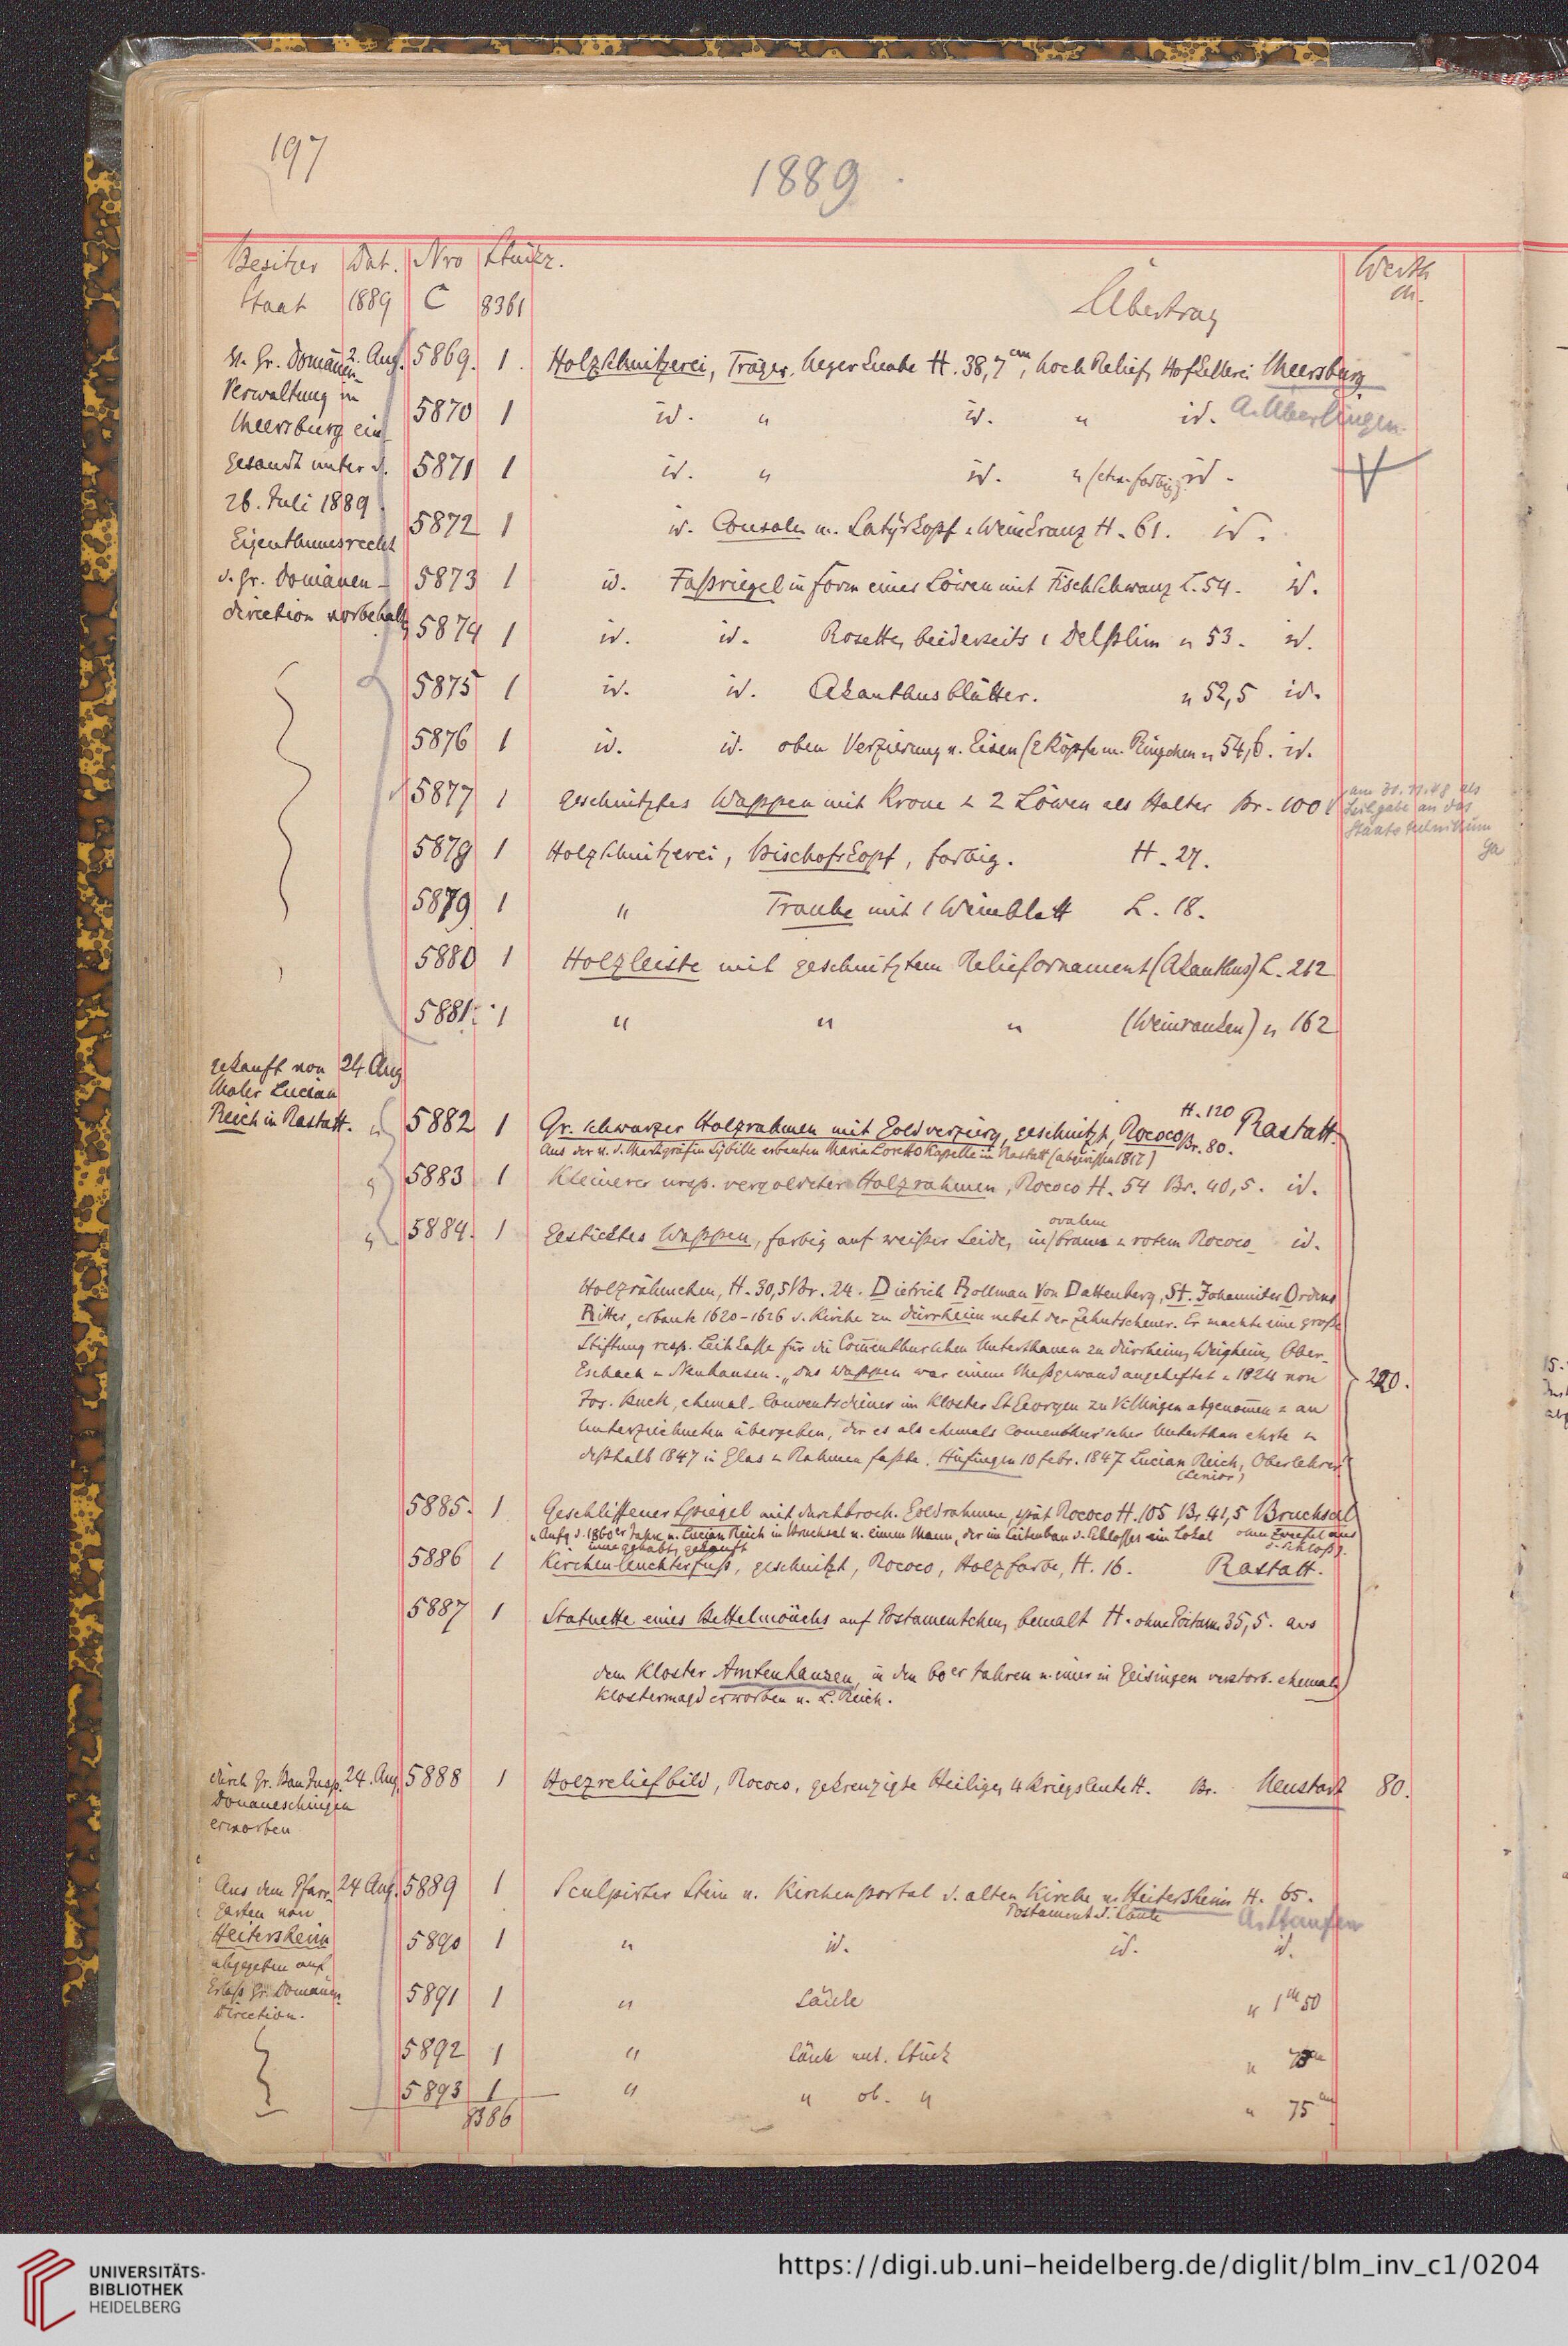 197
1889.
Besitzer Dat. Nro Stückz. Werth
Staat 1889 C 8361 Übertrag M.
v. Gr. Domänen- 2. Aug. 5869. 1. Holzschnitzerei, Träger, Negerknabe H. 38,7 cm, hoch Relief, Hofkellerei Meersburg
Verwaltung in
Meersburg ein 5870 1 id. " id. " id. A. Überlingen
gesandt unter d. 5871 1 id. " id. " id.
26. Juli 1889
5872 1 id. Console m. Satyrkopf u. Weinkranz H. 61. id.
Eigenthumsrecht
d. Gr. Domänen- 5873 1 id. Faßriegel in Form eines Löwen mit Fischschwanz L. 54. id.
direction vorbehalt. 5874 1 id. id. Rosette, beiderseits 1 Delphin " 53. id.
5875 1 id. id. Akanthusblätter. " 52,5 id.
5876 1 id. id. oben Verzierung v. Eisen (2 Köpfe m. Ringchen " 54,6. id.
5877 1 geschnitztes Wappen mit Krone u. 2 Löwen als Halter Br. 100 am 30. 11. 48 als
Leihgabe an das
Staatstechnikum
5878 1 Holzschnitzerei, Bischofskopf, farbig. H. 27.
5879 1 " Traube mit 1 Weinblatt L. 18.
5880 1 Holzleiste mit geschnitztem Reliefornament (Akanthus) L. 212
5881. 1 " " " (Weinranken) " 162
gekauft von 24. Aug
Maler Lucian
Reich in Rastatt. " 5882 1 Gr. schwarzer Holzrahmen mit Goldverzierg, geschnitzt, Rococo H. 120 Br. 80. Rastatt.
Aus der v. d. Markgräfin Sybille erbauten Maria Loretto Kapelle in Rastatt (abgerissen 1817)
" 5883 1 Kleinerer ursp. vergoldeter Holzrahmen, Rococo H. 54 Br. 40,5. id.
" 5884. 1 Gesticktes Wappen, farbig auf weißer Seide, in ovalem braun u. rotem Rococo id.
Holzrähmchen, H. 30,5 Br. 24. Dietrich Rollman Von Dattenberg, St. Johanniter Ordens
Ritter, erbaute 1620-1626 d. Kirche zu Dürrheim nebst der Zehntscheuer. Er machte eine große
Stiftung resp. Leihkasse für die Commenthurschen Unterthanen zu Dürrheim, Weigheim, Ober-
Eschach u. Neuhausen. „Das Wappen war einem Meßgewand angeheftet u. 1824 von 220.
Jos. Buck, ehemal. Conventsdiener im Kloster St Georgen zu Villingen abgenommen u. an
Unterzeichneten übergeben, der es als ehemals Comenthur'scher Unterthan ehrte u.
deßhalb 1847 in Glas u. Rahmen faßte. Hüfingen 10 Febr. 1847 Lucian Reich, Oberlehrer"
(Senior)
5885. 1 Geschliffener Spiegel mit durchbroch. Goldrahmen, spät Rococo H. 105 Br. 41,5 Bruchsal
" Anfg d. 1860er Jahre v. Lucian Reich in Bruchsal v. einem Mann, der im Seitenbau d. Schlosses ein Lokal ohne Zweifel aus
inne gehabt, gekauft d. Schloß.
5886 1 Kirchenleuchterfuß, geschnitzt, Rococo, Holzfarbe, H. 16. Rastatt.
5887 1 Statuette eines Bettelmönchs auf Postamentchen, bemalt H. ohne Postam. 35,5. aus
dem Kloster Amtenhausen, in den 60er Jahren v. einer in Geisingen verstorb. ehemal.
Klostermagd erworben v. L. Reich.
durch Gr. Bau Insp. 24. Aug. 5888 1 Holzreliefbild, Rococo, gekreuzigte Heilige, 4 Kriegsleute H. Br. Neustadt 80.
Donaueschingen
erworben
Aus dem Pfarr- 24 Aug. 5889 1 Sculpirter Stein v. Kirchenportal d. alten Kirche v. Heitersheim H. 65.
garten von Postament d. Säule A. Staufen
Heitersheim 5890 1 " id. id. id.
abgegeben auf
Erlaß Gr. Domänen 5891 1 " Säule " 1 m 50
Direction.
5892 1 " Säule unt. Stück "
5893 1 " " ob. " " 75 cm
8386
UNIVERSITÄTS-
BIBLIOTHEK
HEIDELBERG
https://digi.ub.uni-heidelberg.de/diglit/blm_inv_c1/0204